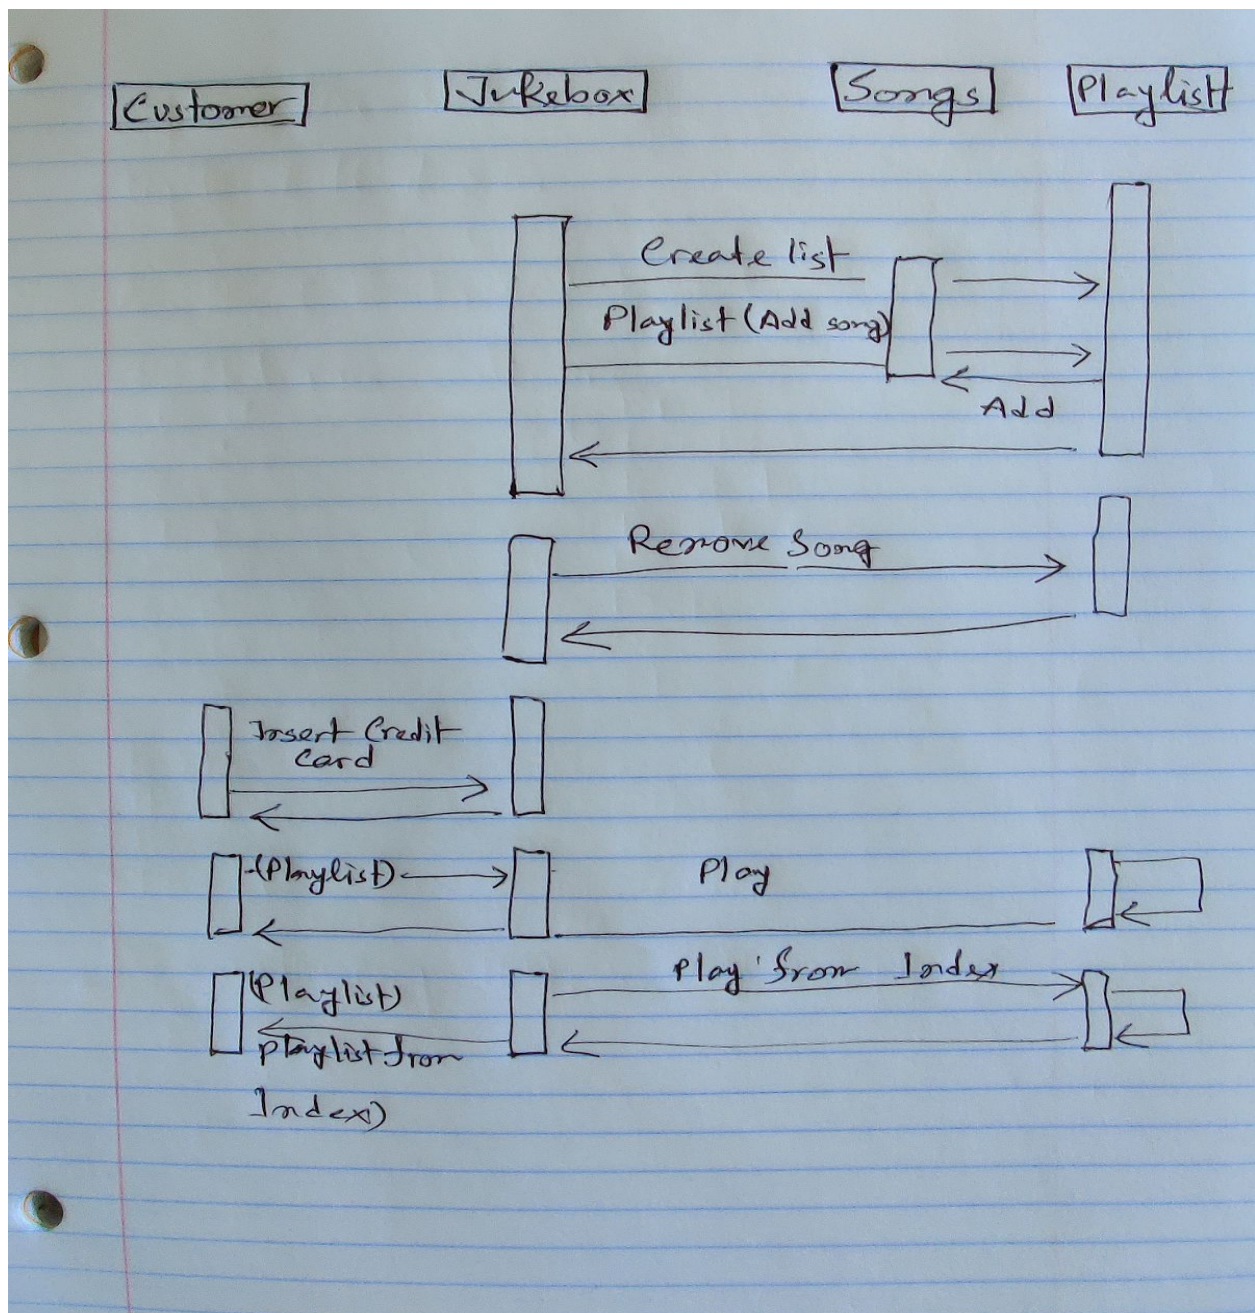 Customer
Jukebox
Songs
Playlist
Create list
Playlist (Add song)
Add
Remove Song
Insert Credit
Card
(Playlist)
Play
Play from Index
(Playlist)
Playlist from
Index)